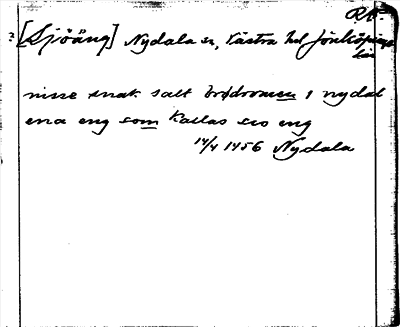 Rv.
? [Sjöäng] Nydala sn, Västra hd Jönköpings
län
nisse snak salt brødromen i nydal
ena eng som kallas seo eng
14/4 1456 Nydala